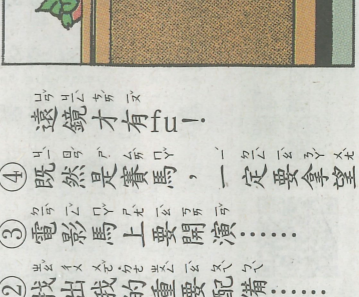 ②找出我的重要配備……
③電影馬上要開演……
④既然是賽馬，一定要拿望
遠鏡才有fu！